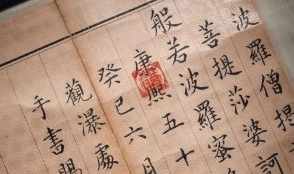 波羅僧提
菩提莎婆訶
般若波羅蜜
康熙五十
癸巳六月
觀瀑處
手書賜